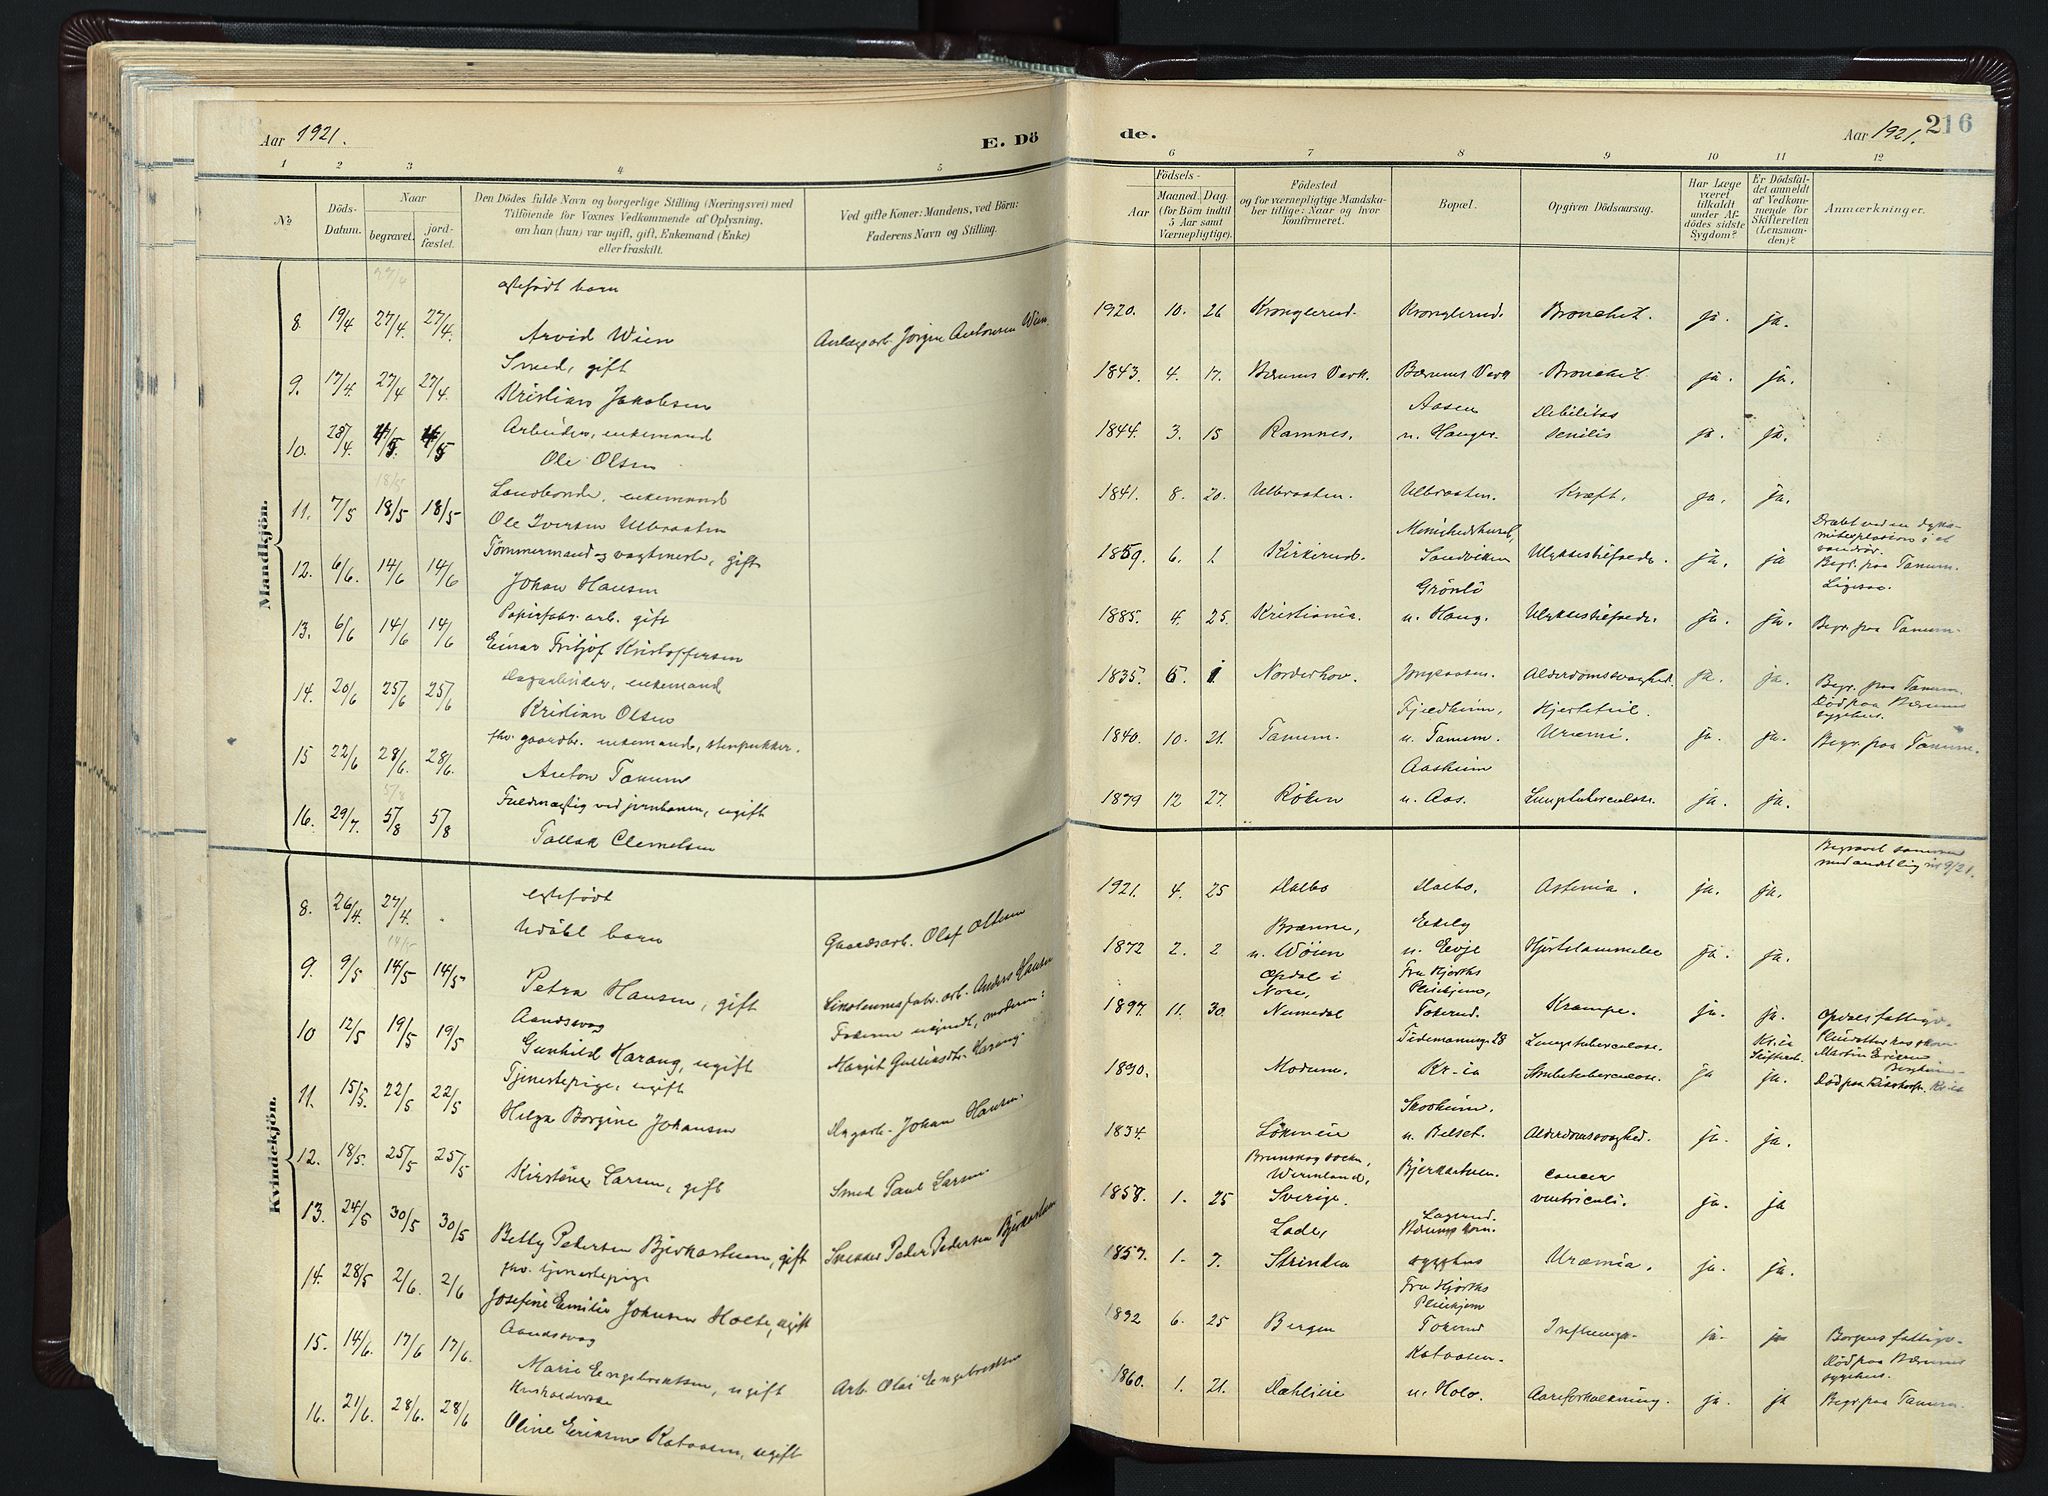 Aar 1921.
E. Dö
de.
Aar 1921.
216
1 2 3 4 5
6 7 8 9 10 11 12
No.
Döds-
Datum.
Naar
begravet.
jord-
fæstet.
Den Dödes fulde Navn og borgerlige Stilling (Næringsvei) med
Tilföiende for Voxnes Vedkommende af Oplysning,
om han (hun) var ugift, gift, Enkemand (Enke)
eller fraskilt.
Ved gifte Koner: Mandens, ved Börn:
Faderens Navn og Stilling.
Födsels-
Aar
Maaned. Dag.
(for Börn indtil
5 Aar samt
Værnepligtige).
Födested
og for værnepligtige Mandska-
ber tillige: Naar og hvor
konfirmeret.
Bopæl.
Opgiven Dödsaarsag.
Har Læge
været
tilkaldt
under Af-
dödes sidste
Sygdom?
Er Dödsfal-
det anmeldt
af Vedkom-
mende for
Skifteretten
(Lensman-
den)?
Anmærkninger.
Mandkjön.
27/4
egtefødt barn
8. 19/4 27/4. 27/4. Arvid Wien Anlægsarb. Jörgen Antonsen Wien.
1920. 10. 26 Kronglerud. Kronglerud. Bronchit. ja. ja.
Smed, gift
9. 17/4 27/4 27/4. Kristian Jakobsen
1843. 4. 17. Bærums Verk. Bærums Verk Bronchit. ja. ja.
Arbeider, enkemand
Aasen Debilitas
10. 28/4. 4/5. 4/5 Ole Olsen
1844. 3. 15 Ramnes. u. Hauger. senilis ja. ja.
18/5
Landbonde, enkemand
11. 7/5 18/5 18/5 Ole Iversen Ulbraaten
1841. 8. 20. Ulbraaten. Ulbraaten. Kræft. ja. ja.
Tømmermand og vagtmester, gift
12. 6/6. 14/6 14/6 Johan Hansen
1859. 6. 1. Kirkerud. Menighedshuset,
Sandviken Ulykkestilfælde. ja. ja
Dræbt ved en dyna-
miteksplosion i et
vandrør.
Begr. paa Tanum.
Ligesaa.
Papirfabr. arb. gift
Grönli
13. 6/6 14/6 14/6 Einar Fritjof Kristoffersen
1885. 4. 25. Kristiania. u. Haug. Ulykkestilfælde. ja. ja. Begr. paa Tanum.
Dagarbeider, enkemand
14. 20/6 25/6 25/6 Kristian Olsen
1835. 5. 1 Norderhov. Jongsaasen. Alderdomssvaghed. ja. ja. Begr. paa Tanum.
fhv. gaardbr. enkemand, stenpukker.
Fjeldheim, Hjertefeil.
Död paa Bærums
sygehus.
15 22/6 28/6. 28/6. Anton Tanum
1840. 10. 21. Tanum. u. Tanum. Uræmi. ja. ja. Begr. paa Tanum.
5/8
Fuldmægtig ved jernbanen, ugift
Aasheim
16. 29/7. 5/8 5/8 Tallak Clemetsen
1879 12 27. Röken u. Aas. Lungetuberculose. ja. ja.
Kvindekjön.
egtefødt
Begravet sammen
med andet lig nr 9/21.
8. 26/4. 27/4. Udöbt barn Gaardsarb. Olaf Olsen
1921. 4. 25 Dalbo Dalbo. Astenia. ja. ja.
14/5
Brænne, Eikely
9. 9/5 14/5 14/5 Petra Hansen, gift Linoleumsfabr. arb. Anders Hansen
1872 2. 2 u. Wöien u. Evje Hjertelammelse ja. ja.
Aandssvag
10 12/5 19/5 19/5 Gunhild Harang, ugift
Faderen ugivet, moderen:
Margit Gulliksdtr. Harang.
1897. 11. 30. Opdal i
Nore,
Numedal
Fru Hjorths
Pleiehjem,
Tokerud. Krampe. ja. ja. Opdals fattigv.
Tjenestepige, ugift
11. 15/5. 22/5 22/5 Helga Borgine Johansen Dagarb. Johan Hansen.
1890. Modum. Tidemannsg. 28
Kr-ia Lungetuberculose.
Strubetuberculose. ja Kr.ia
Skifteret.
ja.
Martin Eriksen
12. 18/5. 25/5 25/5 Kirstine Larsen, gift Smed Paul Larsen.
1834. Lökmeie Skooheim.
u. Belset. Alderdomssvaghed. ja. ja.
13. 24/5 30/5 30/5 Betty Pedersen Bjerkastuen, gift Snekker Peder Pedersen Bjerkastuen
1858. 1. 25 Brunskog socken,
Wermland,
Sverige. Bjerkastuen. cancer
ventriculi. ja. ja
fhv. tjenestepige
14. 28/5 2/6. 2/6 Josefine Emilie Johnsen Holte, ugift
1857. 1. 7. Lade,
Strinda Bærums kom.
sygehus Uræmia. ja. ja.
Aandssvag
15. 14/6. 17/6 17/6. Marie Engebretsen, ugift Arb. Olai Engebretsen
1892 6. 25 Bergen Fru Hjorths
Pleiehjem
Tokerud Influenza. ja. ja Bergens fattigv.
Husholderske
Kataasen.
Död paa Bærums
sygehus.
16. 21/6. 28/6. 28/6 Oline Eriksen Kataasen, ugift
1860. 1. 21. Dæhlieie u. Holo. Aareforkalkning. ja. ja Begr. paa Tanum.